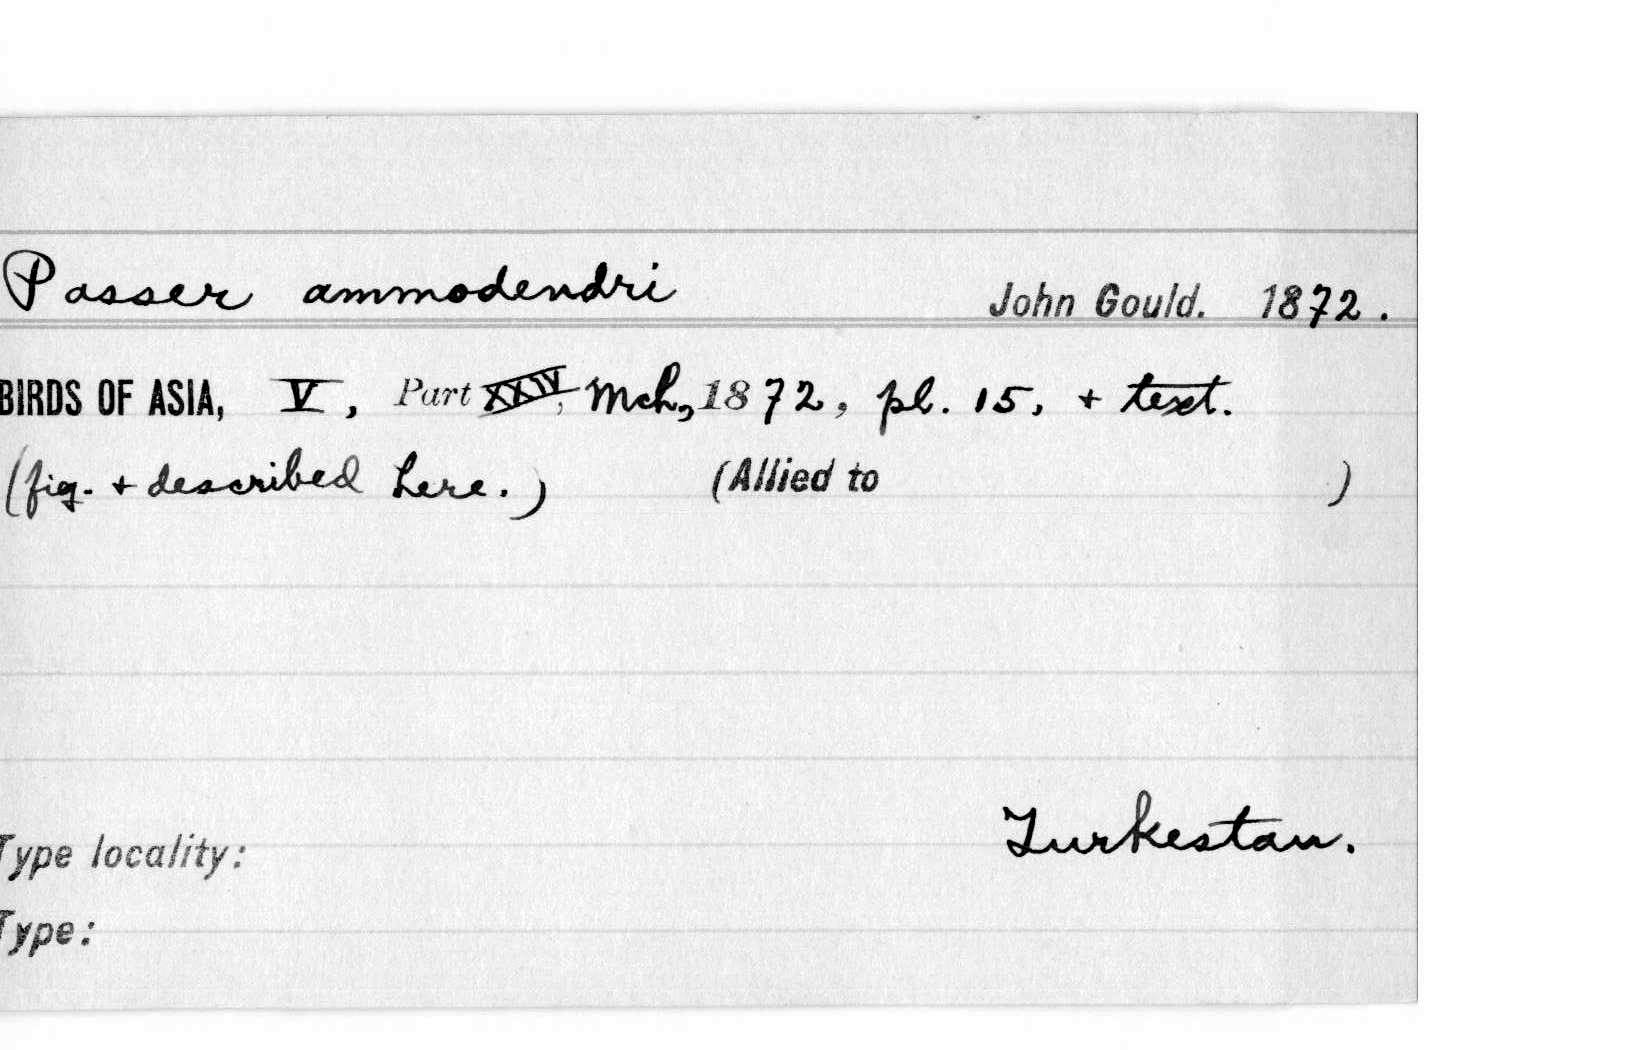 Passer ammodendri John Gould. 1872.
BIRDS OF ASIA, V, Part XXIV, Mch, 1872, pl. 15, + text.
(fig. + described here.) (Allied to )
Turkestan.
Type locality:
Type: